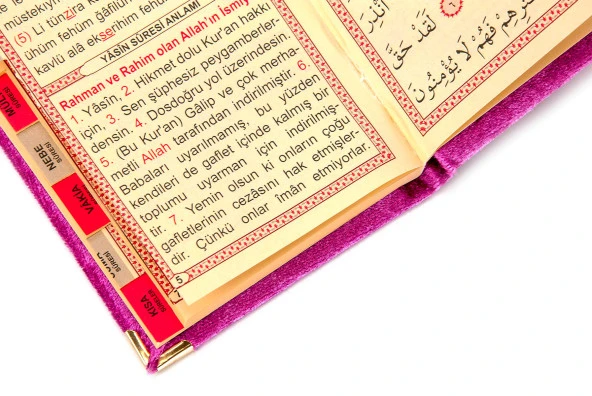 müstekıym
(5) Li tünzira
ühüm fehüm gâfilûn
kavlü alâ ekserihim feh
YÂSİN SÛRESİ ANLAMI
Rahman ve Rahim olan Allah'ın İsmiy
1. Yâsin, 2. Hikmet dolu Kur'an hakkı
için, 3. Sen şüphesiz peygamberler-
densin. 4. Dosdoğru yol üzerindesin.
5. (Bu Kur'an) Gâlip ve çok merha-
metli Allah tarafından indirilmiştir. 6.
Babaları uyarılmamış, bu yüzden
kendileri de gaflet içinde kalmış bir
toplumu uyarman için indirilmiş-
tir. 7. Yemin olsun ki onların çoğu
gafletlerinin cezâsını hak etmişler-
dir. Çünkü onlar îmân etmiyorlar.
5
لَقَدْ حَقَّ
فَهُمْ لَا يُؤْمِنُونَ
MÜLK
SÛRESİ
NEBE
SÛRESİ
VÂKIA
SÛRESİ
KISA
SÛRELER